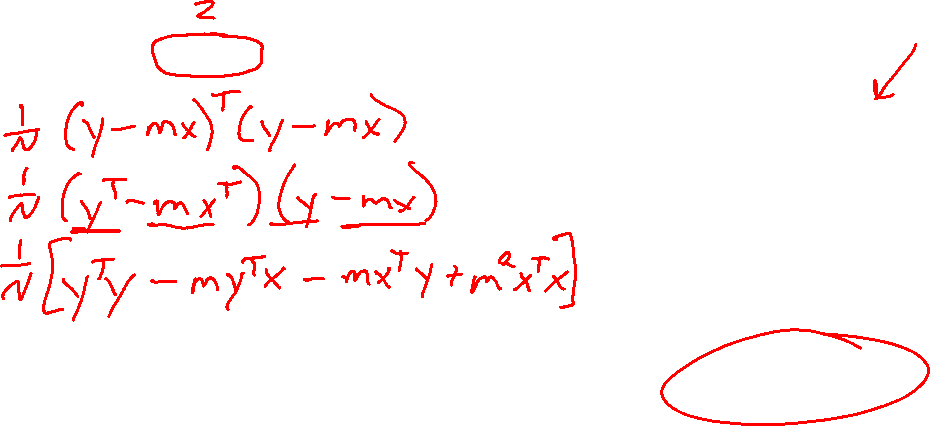 2
1/N (y-mx)^T (y-mx)
1/N (y^T-mx^T)(y-mx)
1/N [y^Ty - my^Tx - mx^Ty + m^2x^Tx]